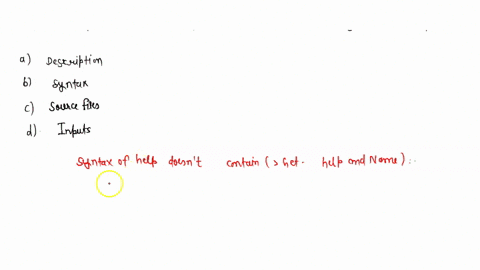 a) Description
b) Syntax
c) Source files
d) Inputs
Syntax of help doesn't contain (> get - help cmd Name) :